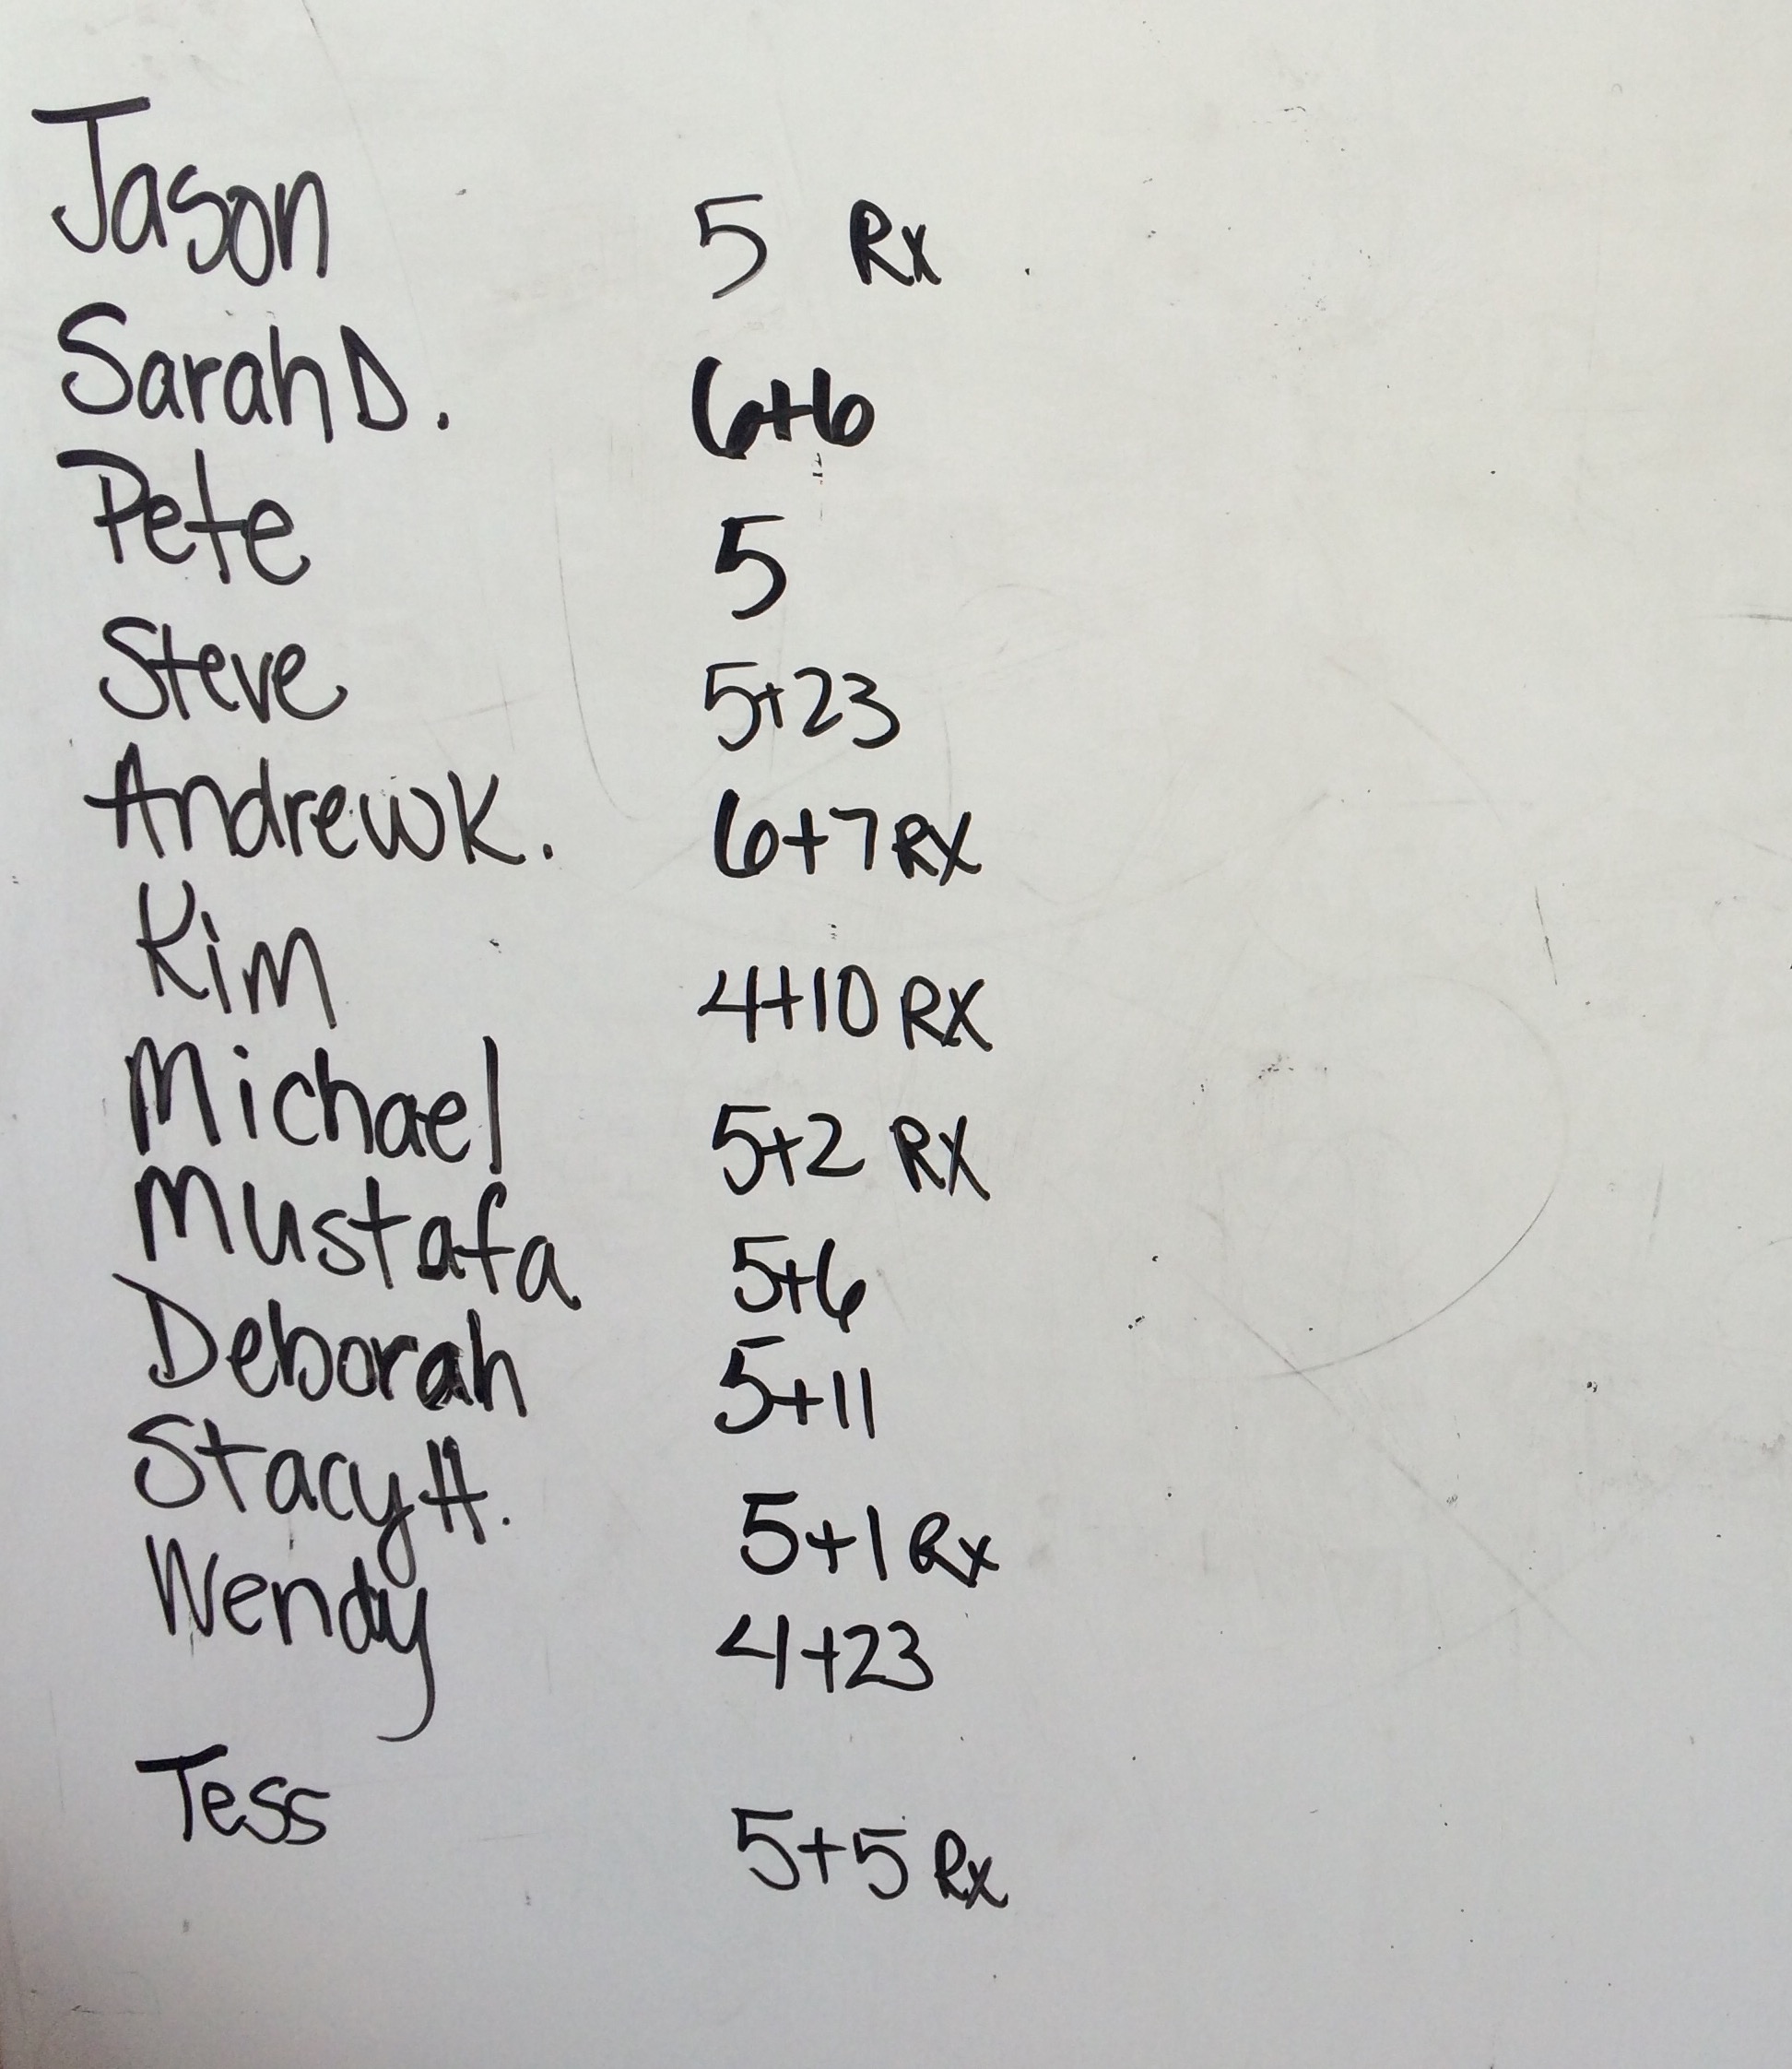 Jason 5 Rx
Sarah D. 6+6
Pete 5
Steve 5+23
Andrew K. 6+7 RX
Kim 4+10 RX
Michael 5+2 RX
Mustafa 5+6
Deborah 5+11
Stacy H. 5+1 Rx
Wendy 4+23
Tess 5+5 Rx